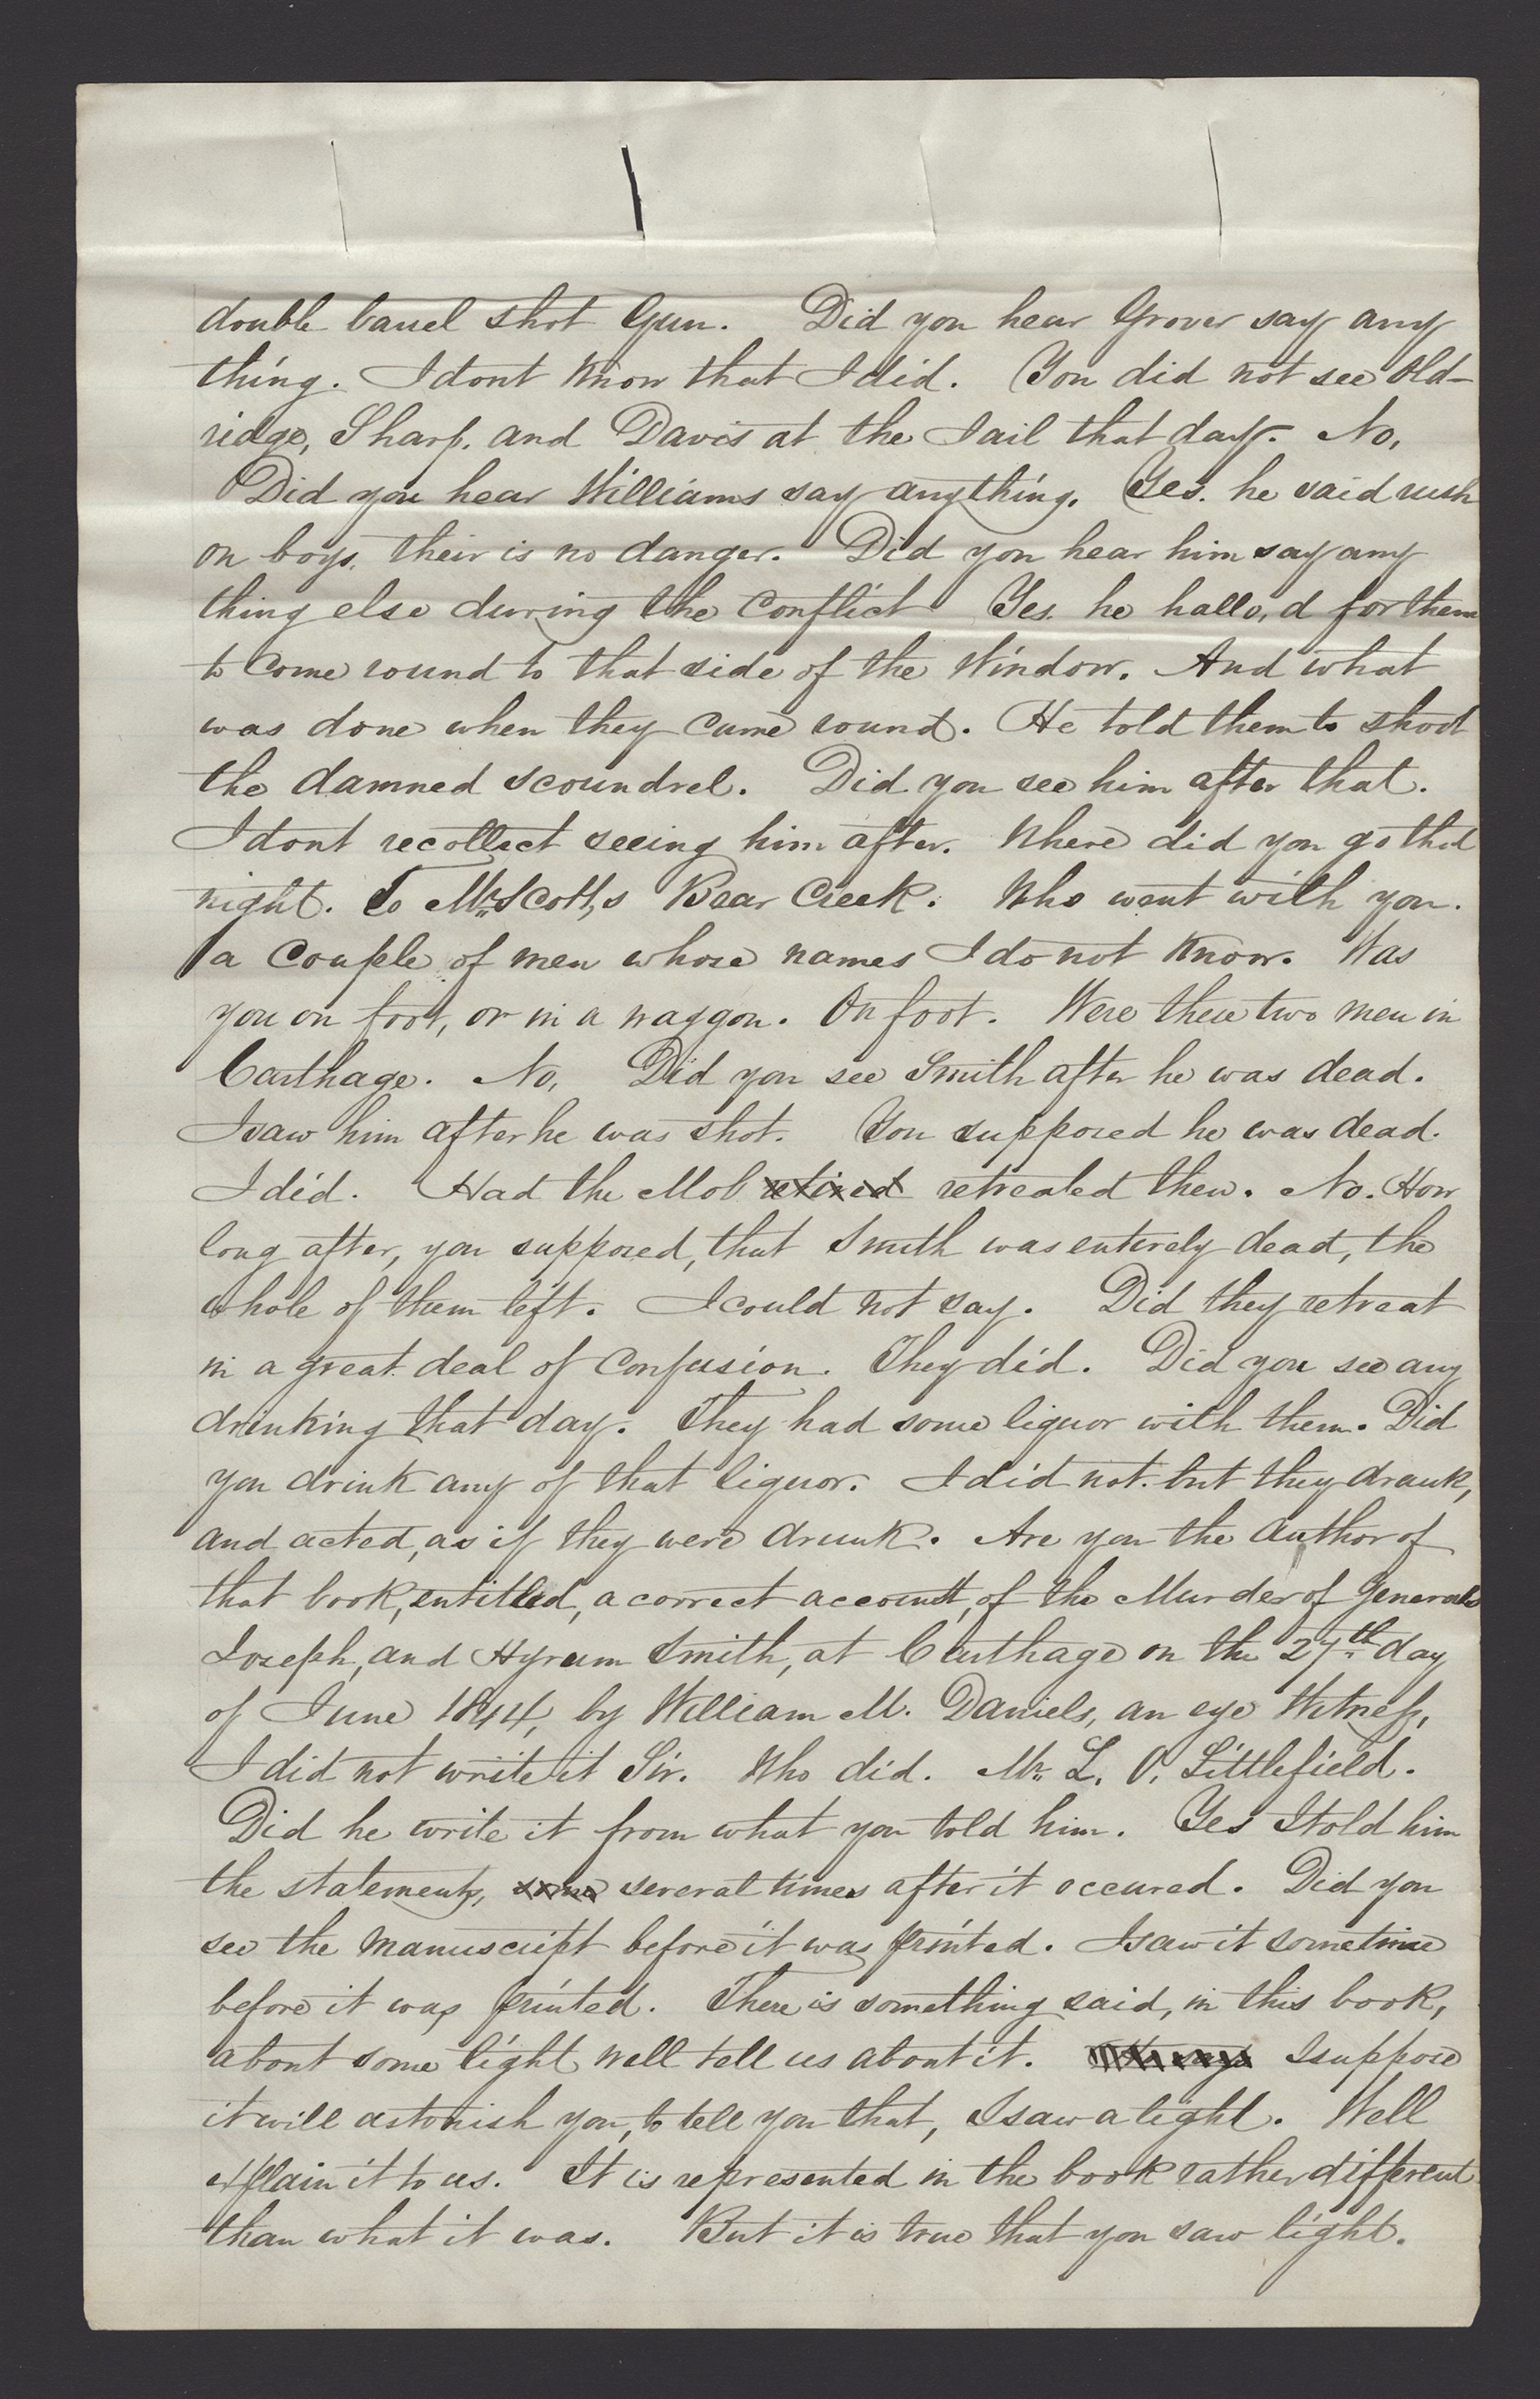 double barrel shot Gun. Did you hear Grover say any
thing. I dont Know that I did. You did not see Old-
ridge, Sharp, and Davis at the Jail that day. No,
Did you hear Williams say anything. Yes. he said rush
on boys, their is no danger. Did you hear him say any
thing else during the Conflict Yes. he hallo,d for them
to Come round to that side of the Window. And what
was done when they Came round. He told them to shoot
the damned scoundrel. Did you see him after that.
I dont recollect seeing him after. Where did you go that
night. To Mr. Scott,s Bear Creek. Who went with you.
a Couple of men whose names I do not Know. Was
you on foot, or in a waggon. On foot. Were these two men in
Carthage. No, Did you see Smith after he was dead.
I saw him after he was shot. You supposed he was dead.
I did. Had the Mob retired retreated then. No. How
long after, you supposed, that Smith was entirely dead, the
whole of them left. I could not say. Did they retreat
in a great deal of Confusion. They did. Did you see any
drinking that day. They had some liquor with them. Did
you drink any of that liquor. I did not. but they drank,
and acted, as if they were drunk. Are you the Author of
that book, entitled, a correct account, of the Murder of Generals
Joseph, and Hyrum Smith, at Carthage on the 27th day
of June 1844, by William M. Daniels, an eye Witness,
I did not write it Sir. Who did. Mr. L. O. Littlefield.
Did he write it from what you told him. Yes I told him
the statements, some several times after it occured. Did you
see the Manuscript before it was printed. I saw it sometime
before it was printed. There is something said, in this book,
about some light, well tell us about it. I suppose
it will astonish you, to tell you that, I saw a light. Well
explain it to us. It is represented in the book rather different
than what it was. But it is true that you saw light.